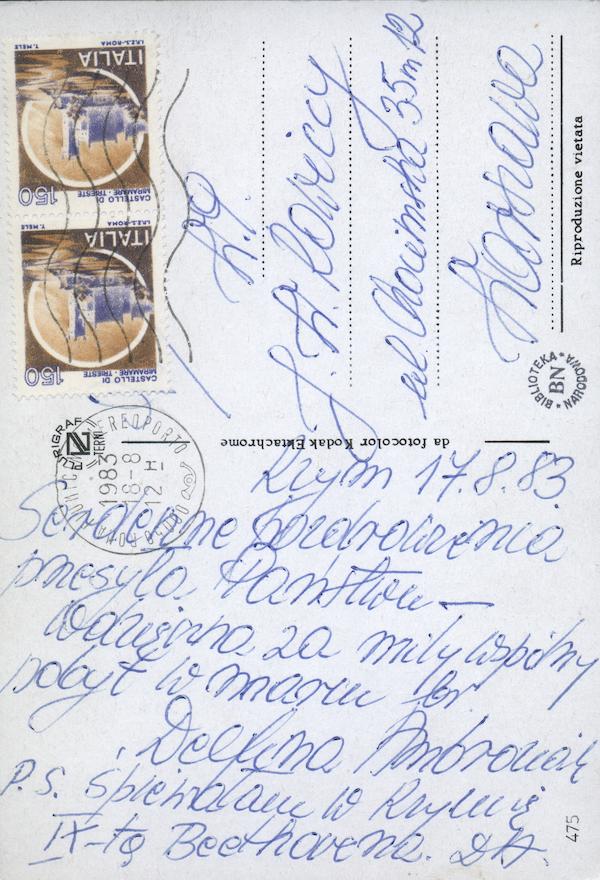 ITALIA
150
CASTELLO DI
MIRAMARE - TRIESTE
I.P.Z.S.-ROMA
T. MELE
ITALIA
150
CASTELLO DI
MIRAMARE - TRIESTE
I.P.Z.S.-ROMA
T. MELE
J. W. Rowiccy
ul. Chocimska 35 m 12
Warszawa
Riproduzione vietata
BIBLIOTEKA NARODOWA
BN
PLURIGRAF
NARNI TERNI
da fotocolor Kodak Ektachrome
AEROPORTO
1983
18-8
12-H
Rzym 17.8.83
Serdeczne pozdrowienia
przesyła Państwu —
wdzięczna za miły wspólny
pobyt w marcu br
Delfina Ambroziak
P.S. śpiewałam w Rzymie
IX-tą Beethovena. DA.
475